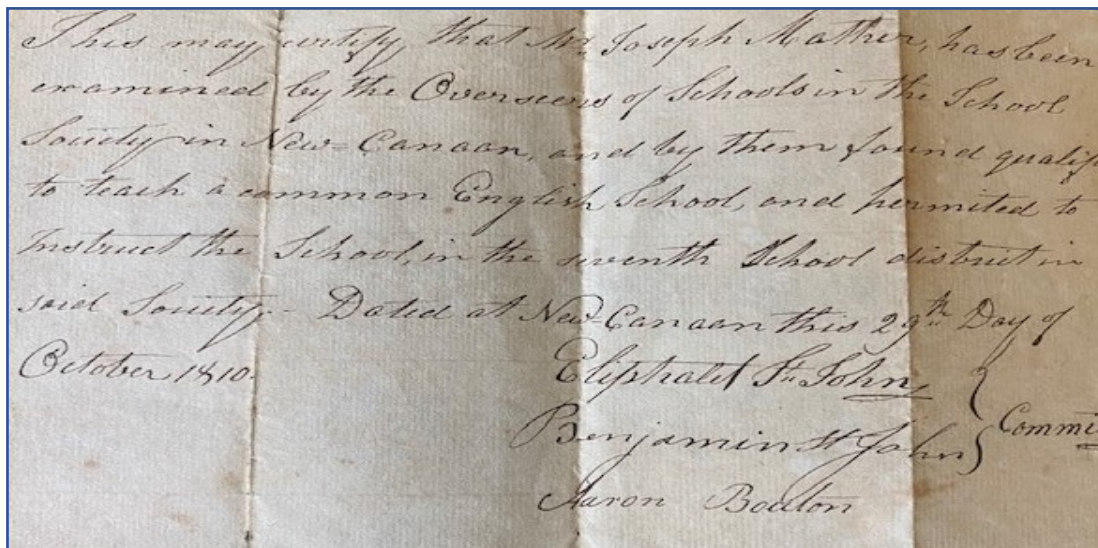 This may certify that Mr. Joseph Mather, has been
examined by the Overseers of Schools in the School
Society in New-Canaan, and by them found qualif
to teach a common English School, and permited to
Instruct the School, in the seventh School district in
said Society.- Dated at New-Canaan this 29th Day of
October, 1810.
Eliphalet St. John
Benjamin St John } Commi
Aaron Bouton